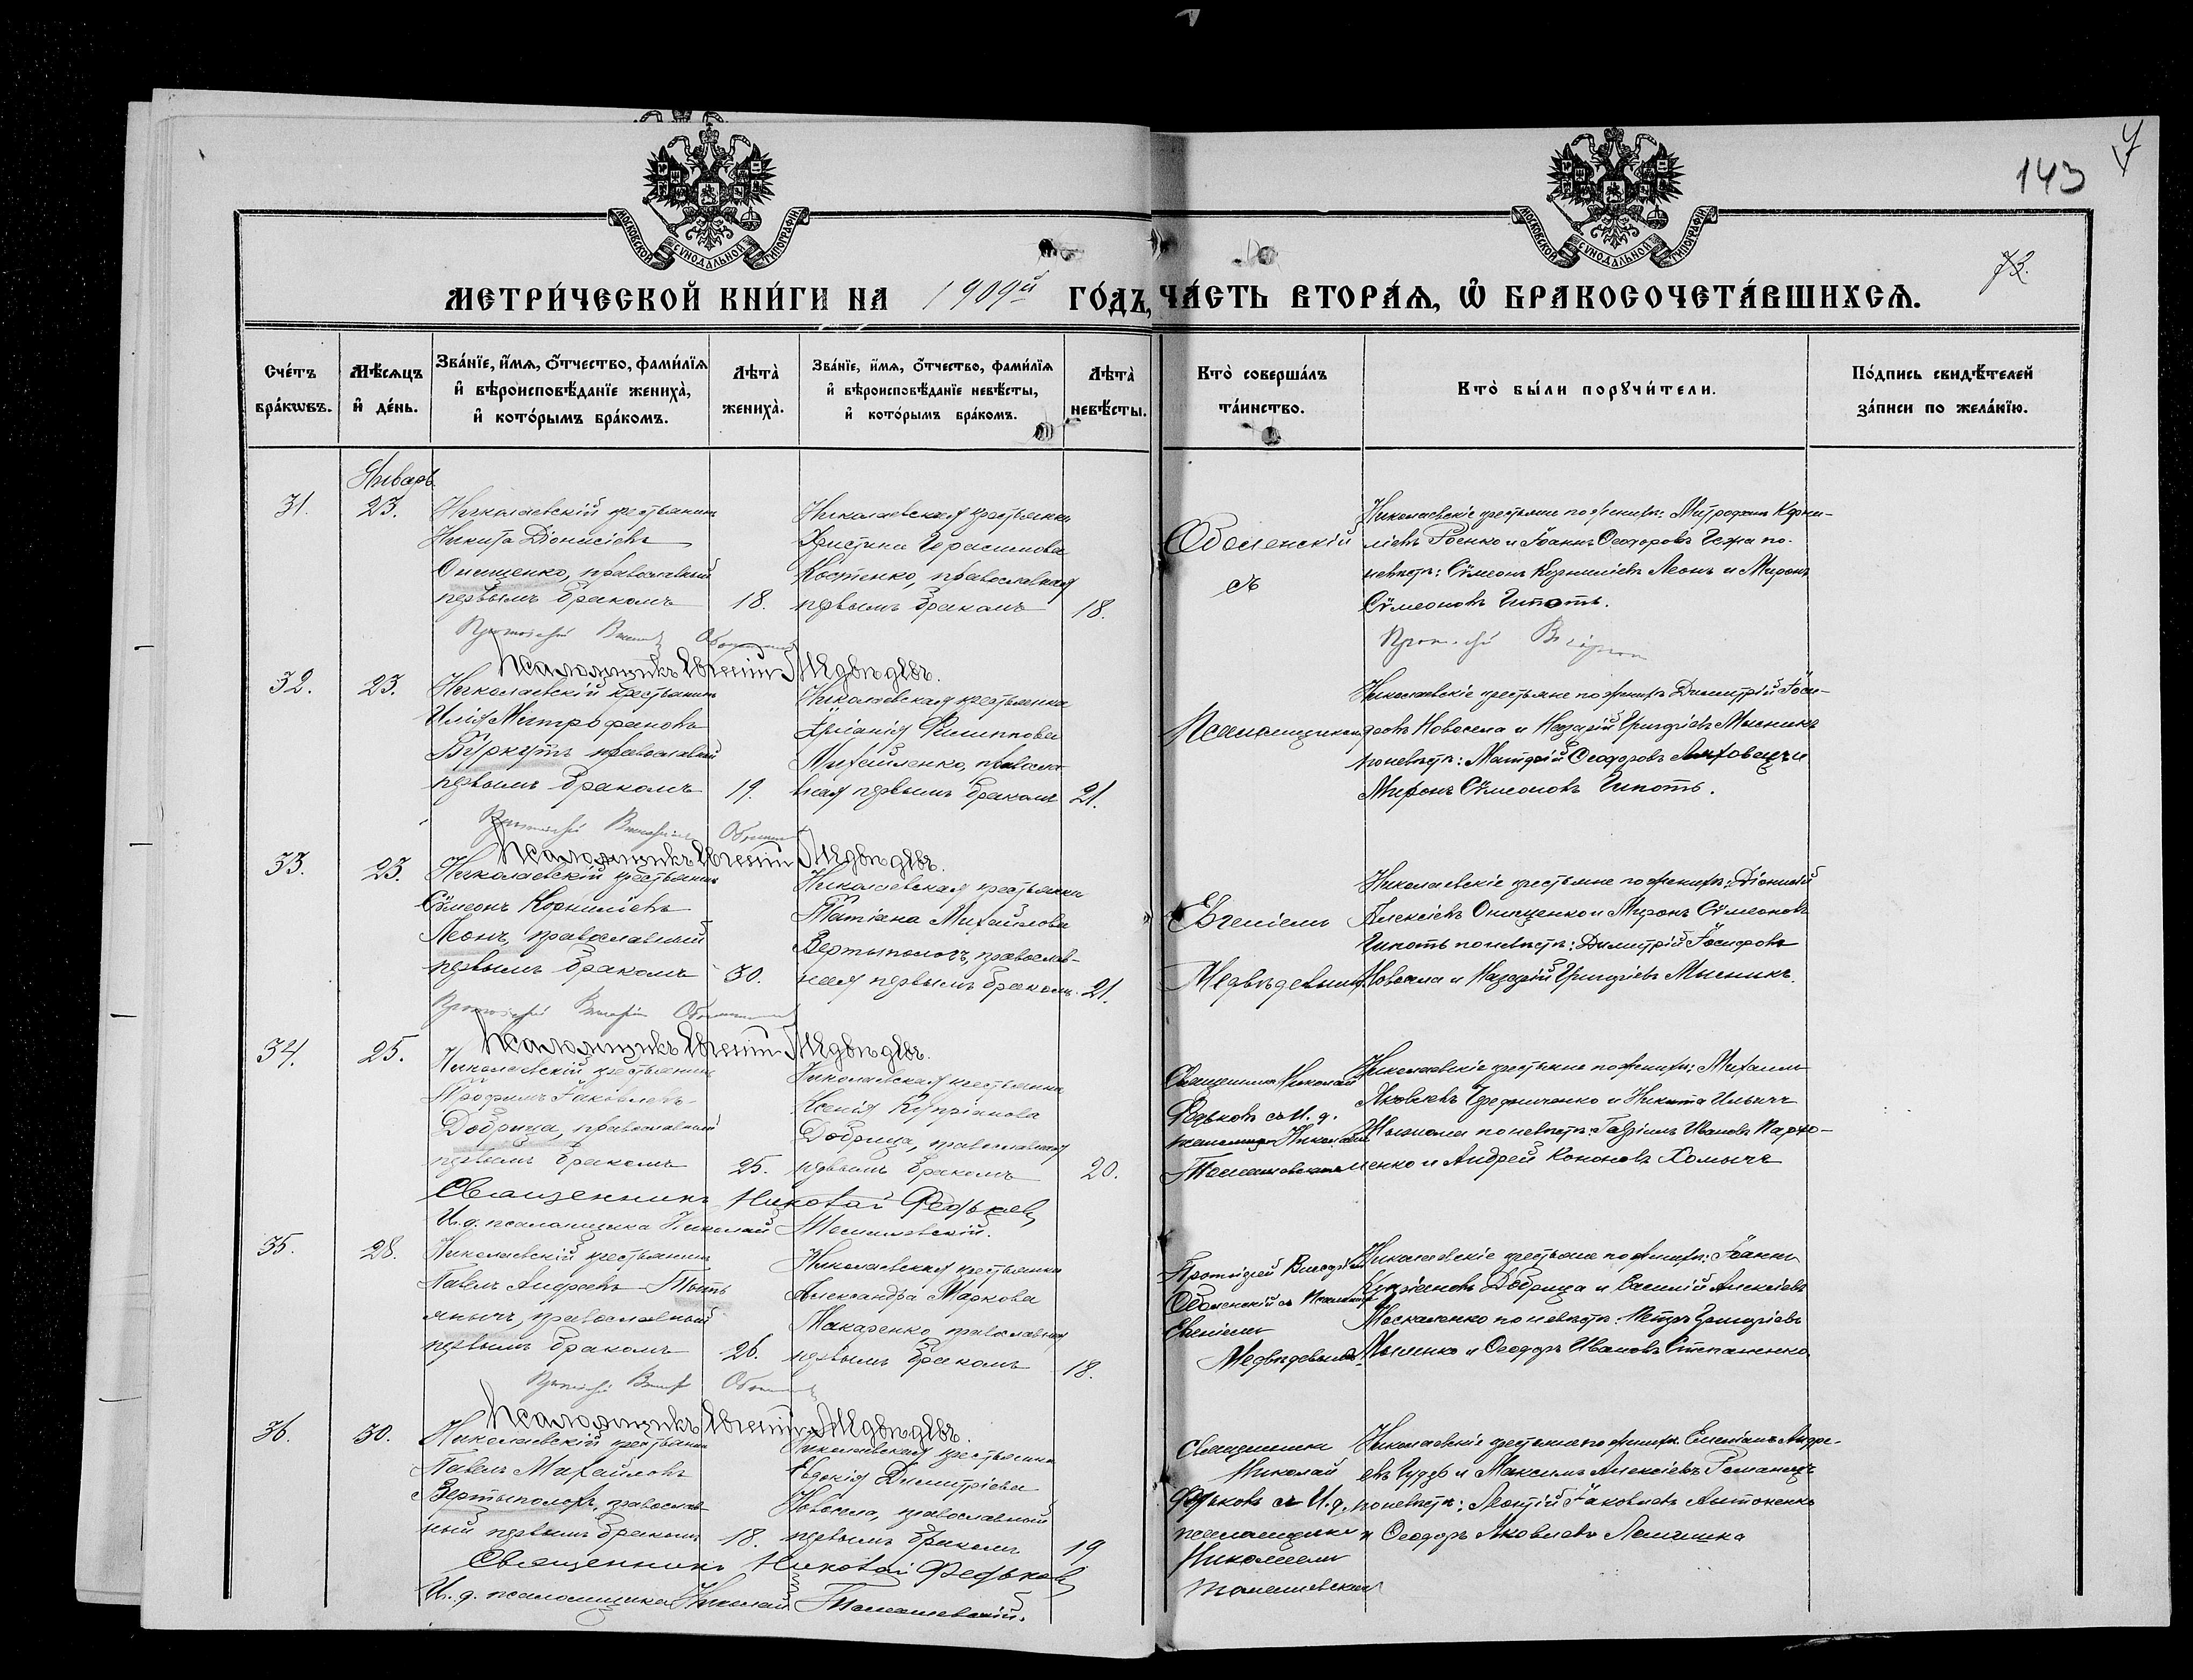 143
73.
МОСКОВСКОЙ СѴНОДАЛЬНОЙ ТИПОГРАФІИ
МОСКОВСКОЙ СѴНОДАЛЬНОЙ ТИПОГРАФІИ
МЕТРИ́ЧЕСКОЙ КНИ́ГИ НА 1909й ГО́ДЪ, ЧА́СТЬ ВТОРА́Ѧ, Ѽ БРАКОСОЧЕТА́ВШИХСѦ.
Сче́тъ бра́кѡвъ.
Мѣ́сѧцъ и҆ де́нь.
Зва́нїе, и҆́мѧ, ѻ҆́тчество, фами́лїѧ и҆ вѣроисповѣ́данїе жениха̀, и҆ кото́рымъ бра́комъ.
Лѣта̀ жениха̀.
Зва́нїе, и҆́мѧ, ѻ҆́тчество, фами́лїѧ и҆ вѣроисповѣ́данїе невѣ́сты, и҆ кото́рымъ бра́комъ.
Лѣта̀ невѣ́сты.
Кто̀ соверша́лъ та́инство.
Кто̀ бы́ли порꙋчи́тели.
По́дпись свидѣ́телей за́писи по жела́нїю.
Январь
31.
23.
Николаевскій крестьянинъ
Никита Діонисіевъ
Онищенко, православный
первымъ бракомъ
18.
Николаевская крестьянка
Христина Герасимова
Костенко, православная
первымъ бракомъ
18.
Оболенскій
съ
Николаевскіе крестьяне по женихѣ: Митрофанъ Корни-
ліевъ Роенко и Іоаннъ Ѳеодоровъ по
невѣстѣ: Сѵмеонъ Корниліевъ Леонъ и Миронъ
Сѵмеоновъ
Псаломщикъ Евгеній Медвѣдевъ.
32.
23.
Николаевскій крестьянинъ
Илія Митрофановъ
Буркутъ православный
первымъ бракомъ
19.
Николаевская крестьянка
Іуліанія Филиппова
Михайленко, правосла-
вная первымъ бракомъ
21.
Псаломщикомъ
Николаевскіе крестьяне по женихѣ Димитрій Іоси-
фовъ Новосела и Назарій Григоріевъ Мысникъ
по невѣстѣ: Матѳій Ѳеодоровъ
Миронъ Сѵмеоновъ
Псаломщикъ Евгеній Медвѣдевъ.
33.
23.
Николаевскій крестьянинъ
Сѵмеонъ Корниліевъ
Леонъ, православный
первымъ бракомъ
30.
Николаевская крестьянка
Татіана Михайлова
Вертыполохъ, православ-
ная первымъ бракомъ.
21.
Евгеніемъ
Медвѣдевымъ
Николаевскіе крестьяне по женихѣ: Діонисій
Алексіевъ Онищенко и Миронъ Сѵмеоновъ
по невѣстѣ: Димитрій Іосифовъ
Новосела и Назарій Григоріевъ Мысникъ.
Псаломщикъ Евгеній Медвѣдевъ.
34.
25.
Николаевскій крестьянинъ
Трофимъ Іаковлевъ
Добрица, православный
первымъ бракомъ
25.
Николаевская крестьянка
Ксенія Купріанова
Добрица, православная
первымъ бракомъ
20.
Священникъ Николай
Федьковъ съ И. д.
Николаевскіе крестьяне по женихѣ: Михаилъ
Яковлевъ Чередниченко и Никита Ильичъ
по невѣстѣ: Гавріилъ Ивановъ Пархо-
менко и Андрей Кононовъ Хомычъ
Священникъ Николай Федьковъ
И. д. псаломщика Николай Томашевскій.
35.
28.
Николаевскій крестьянинъ
Павелъ Андреевъ
православный
первымъ бракомъ
26.
Николаевская крестьянка
Александра Маркова
Макаренко, православная
первымъ бракомъ
18.
Протоіерей
Оболенскій съ
Евгеніемъ
Медвѣдевымъ
Николаевскіе крестьяне по женихѣ: Іоаннъ
Купріановъ Добрица и Василій Алексіевъ
Москаленко по невѣстѣ: Петръ Григоріевъ
и Ѳеодоръ Ивановъ Степаненко
Псаломщикъ Евгеній Медвѣдевъ.
36.
30.
Николаевскій крестьянинъ
Павелъ Михайловъ
Вертыполохъ, православ-
ный первымъ бракомъ
18.
Николаевская крестьянка
Евдокія Димитріева
Новосела, православный
первымъ бракомъ
19
Священникъ
Николай
Федьковъ съ И. д.
псаломщика
Николаемъ
Томашевскимъ
Николаевскіе крестьяне по женихѣ Емеліанъ Андре-
евъ и Максимъ Алексіевъ Романецъ
по невѣстѣ: Леонтій Іаковлевъ Антоненко
и Ѳеодоръ Яковлевъ
Священникъ Николай Федьковъ
И. д. псаломщика Николай Томашевскій.